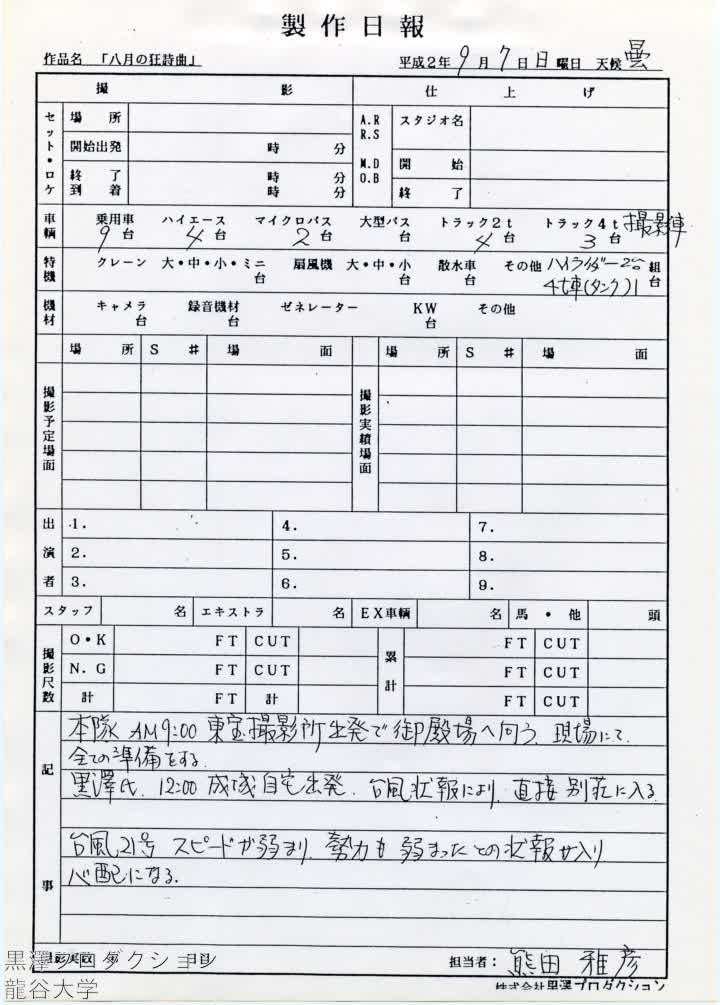 製作日報
作品名 「八月の狂詩曲」 平成2年 9月 7日 日曜日 天候 曇
撮影 仕上げ
セット・ロケ 場所 A.R R.S スタジオ名
開始出発 時 分 M.D O.B 開始
終了到着 時 分 時 分 終了
車輌 乗用車 9台 ハイエース 4台 マイクロバス 2台 大型バス 台 トラック2t 4台 トラック4t 3台 撮影車
特機 クレーン 大・中・小・ミニ 台 扇風機 大・中・小 台 散水車 台 その他 ハイライダー 組 台
4t車(タンク)1
機材 キャメラ 台 録音機材 台 ゼネレーター KW 台 その他
場所 S# 場面 場所 S# 場面
撮影予定場面 撮影実績場面
出演者 1. 4. 7.
2. 5. 8.
3. 6. 9.
スタッフ 名 エキストラ 名 EX車輌 名 馬・他 頭
撮影尺数 O・K FT CUT 累計 FT CUT
N.G FT CUT FT CUT
計 FT 計 FT CUT
記事
本隊 AM9:00 東宝撮影所出発で御殿場へ向う、現場にて、
全ての準備をする。
黒澤氏、12:00 成城自宅出発、台風状報により、直接別荘に入る
台風21号 スピードが弱まり、勢力も弱まったとの状報が入り
心配になる。
撮影実数 第 日目
担当者: 熊田 雅彦
株式会社黒澤プロダクション
黒澤プロダクション
龍谷大学